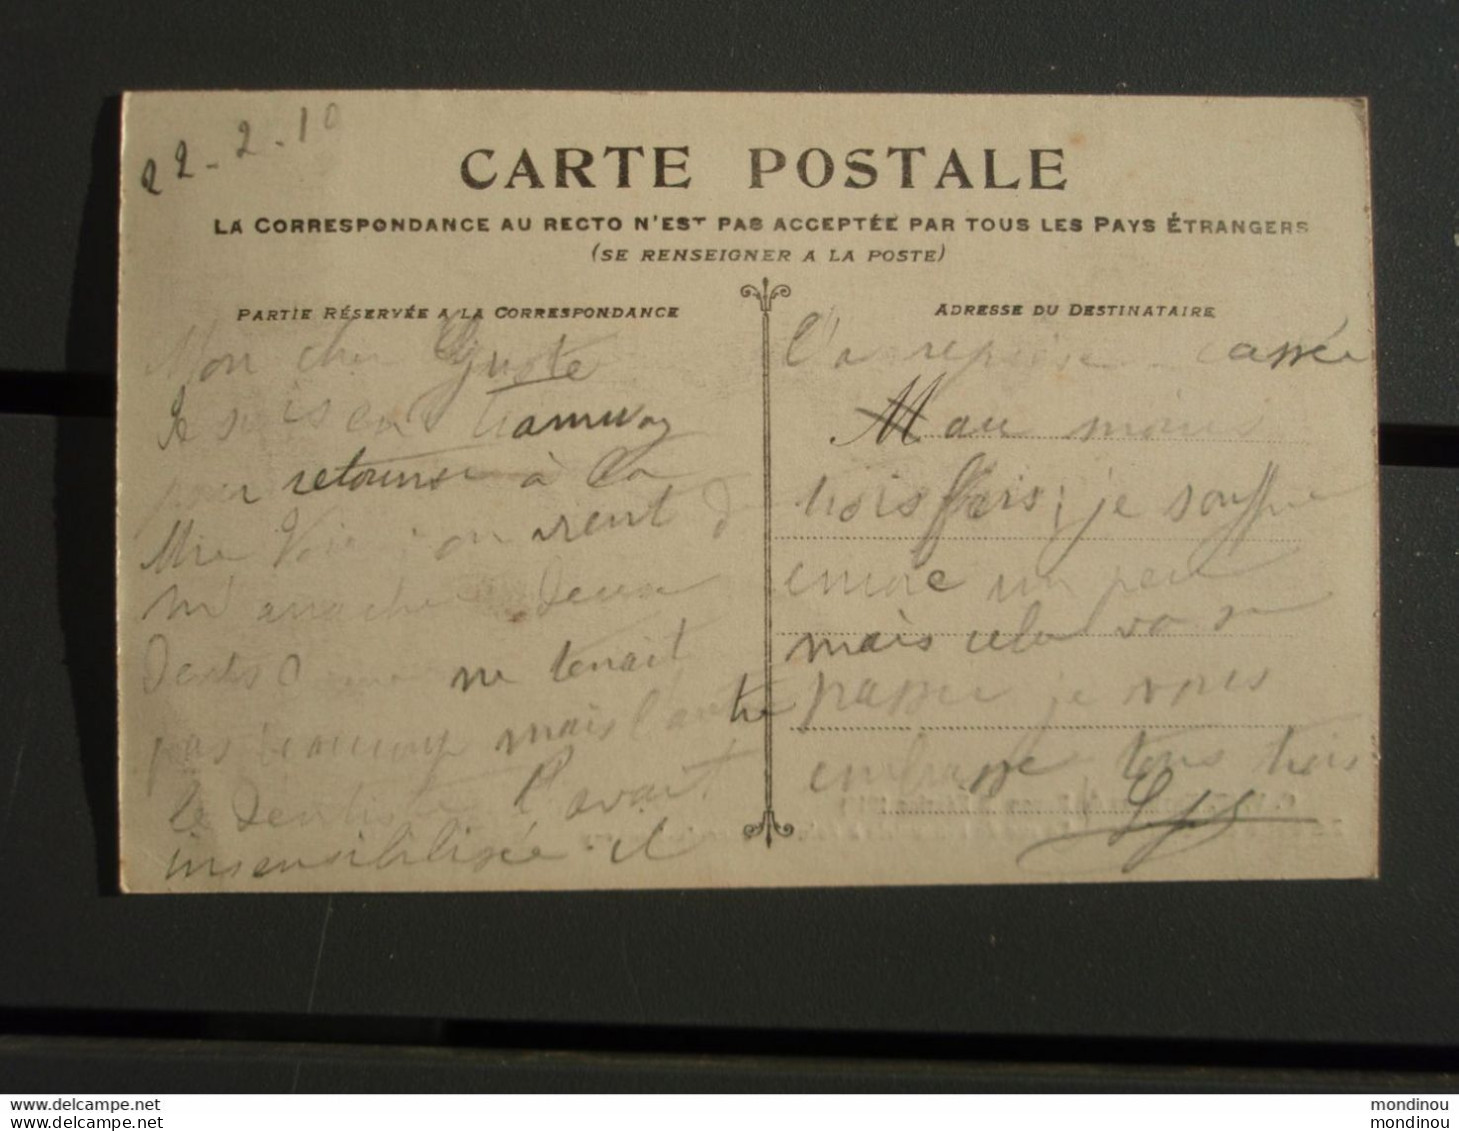 22-2-10
CARTE POSTALE
LA CORRESPONDANCE AU RECTO N'EST PAS ACCEPTÉE PAR TOUS LES PAYS ÉTRANGERS
(SE RENSEIGNER A LA POSTE)
PARTIE RÉSERVÉE A LA CORRESPONDANCE
Mon cher
Je suis en tramway
pour retourner à la
on vient de
m'arracher deux
dents ne tenait
pas beaucoup mais l'autre
le dentiste l'avait
insensibilisée il
ADRESSE DU DESTINATAIRE
l'a cassée
au moins
trois fois; je souffre
encore un peu
mais cela va se
passer je vous
embrasse tous trois
delcampe.net
delcampe.net
mondinou
mondinou